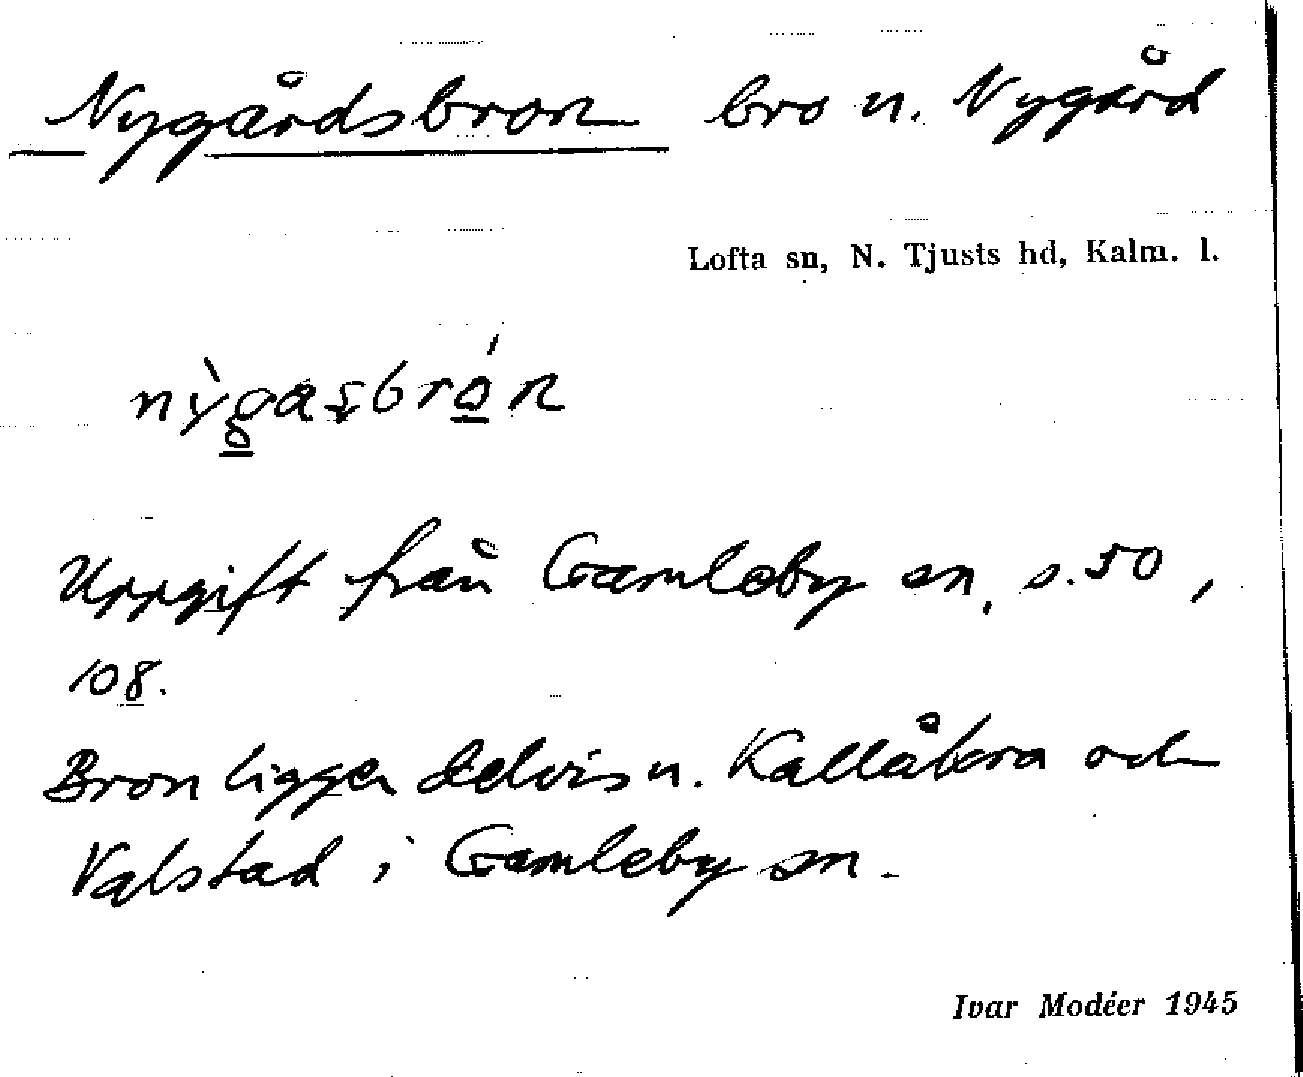 Nygårdsbron bro u. Nygård
Lofta sn, N. Tjusts hd, Kalm. l.
Uppgift från Gamleby sn, s. 50,
108.
Bron ligger delvis u. Kallåkra och
Valstad i Gamleby sn.
Ivar Modéer 1945